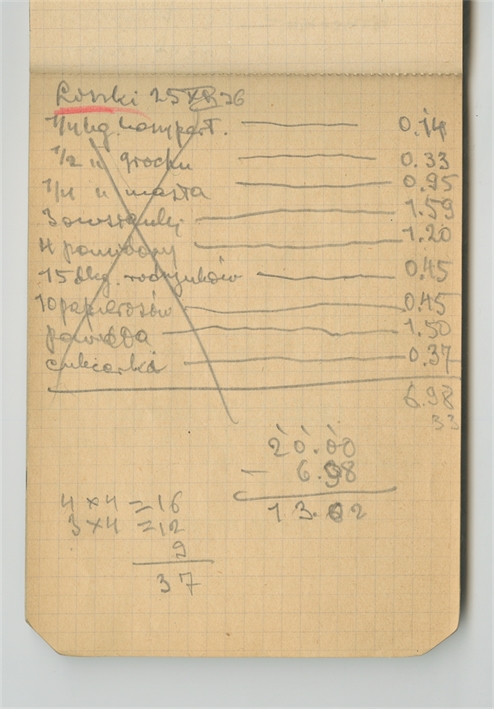 Łoszki 25 XII 36
1/4 kg. kompart. 0.14
1/2 u grochu 0.33
1/4 u masła 0.95
3 1.59
4 pomidory 1.20
15 dkg. rodzynków 0.45
10 papierosów 0.45
powidła 1.50
cukierki 0.37
6.98
33
20.00
- 6.98
13.02
4 x 4 = 16
3 x 4 = 12
9
37